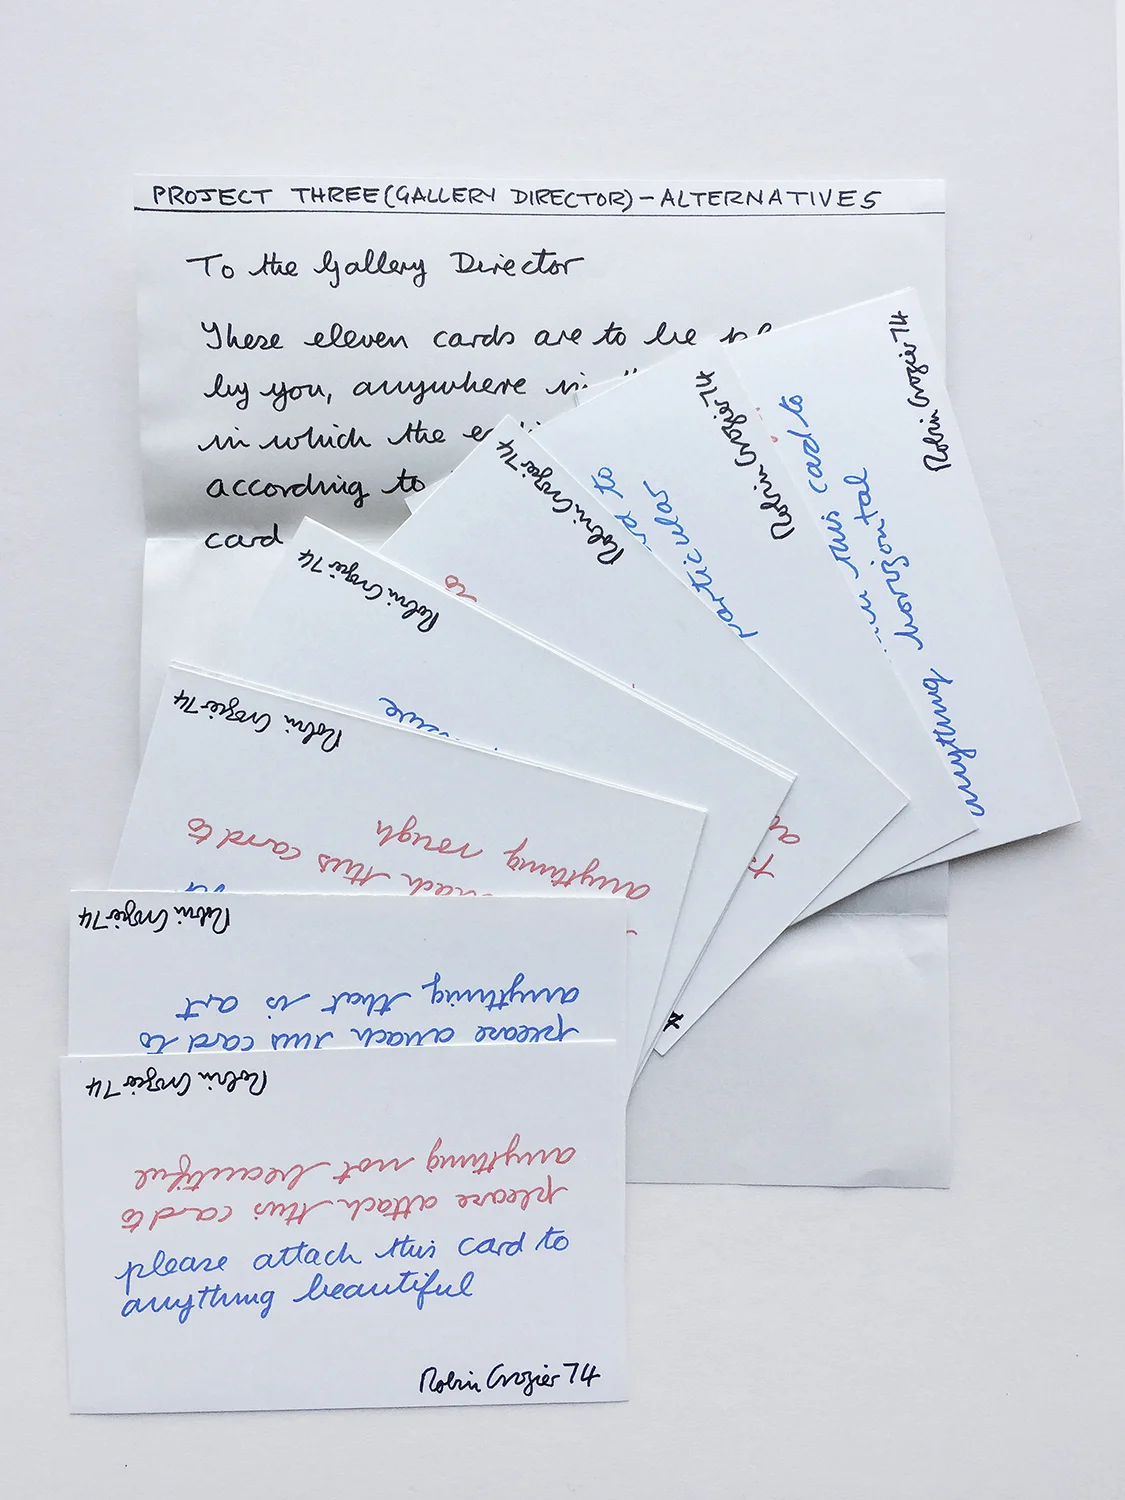 PROJECT THREE (GALLERY DIRECTOR) – ALTERNATIVES
To the Gallery Director
These eleven cards are to be
by you, anywhere in
in which the
according to
card
Robin Crozier 74
this card to
anything horizontal
Robin Crozier 74
to
particular
Robin Crozier 74
Robin Crozier 74
Robin Crozier 74
this card to
anything rough
Robin Crozier 74
anything that is art
please attach this card to
Robin Crozier 74
anything not beautiful
please attach this card to
please attach this card to
anything beautiful
Robin Crozier 74